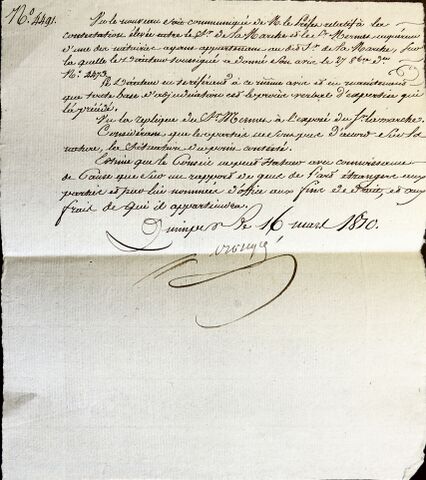 N.o 4491.
Vu le nouveau communiqué de M. le Préfet relatif à la
contestation élevée entre le Sr. de la Marche et le Sr. Mermet acquéreur
d'une des métairies ayant appartenu au dit Sr. de la Marche, sur
laquelle le Directeur soussigné a donné son avis le 27 9bre dr.
N.o 4473.
Le Directeur en se référant à ce même avis et en maintenant
que toute base d'adjudication est le procès verbal d'expertise qui
l'a précédé.
Vu la réplique du Sr. Mermet à l'exposé du Sr. lamarche.
Considérant que les parties ne sont pas d'accord sur la
nature, la situation contesté.
Estime que le Conseil ne peut statuer avec connaissance
de Cause que sur un rapport de gens de l'art étrangers aux
parties et par lui nommés d'office aux fins de droit, et aux
frais de qui il appartiendra.
Quimper le 16 mars 1810.